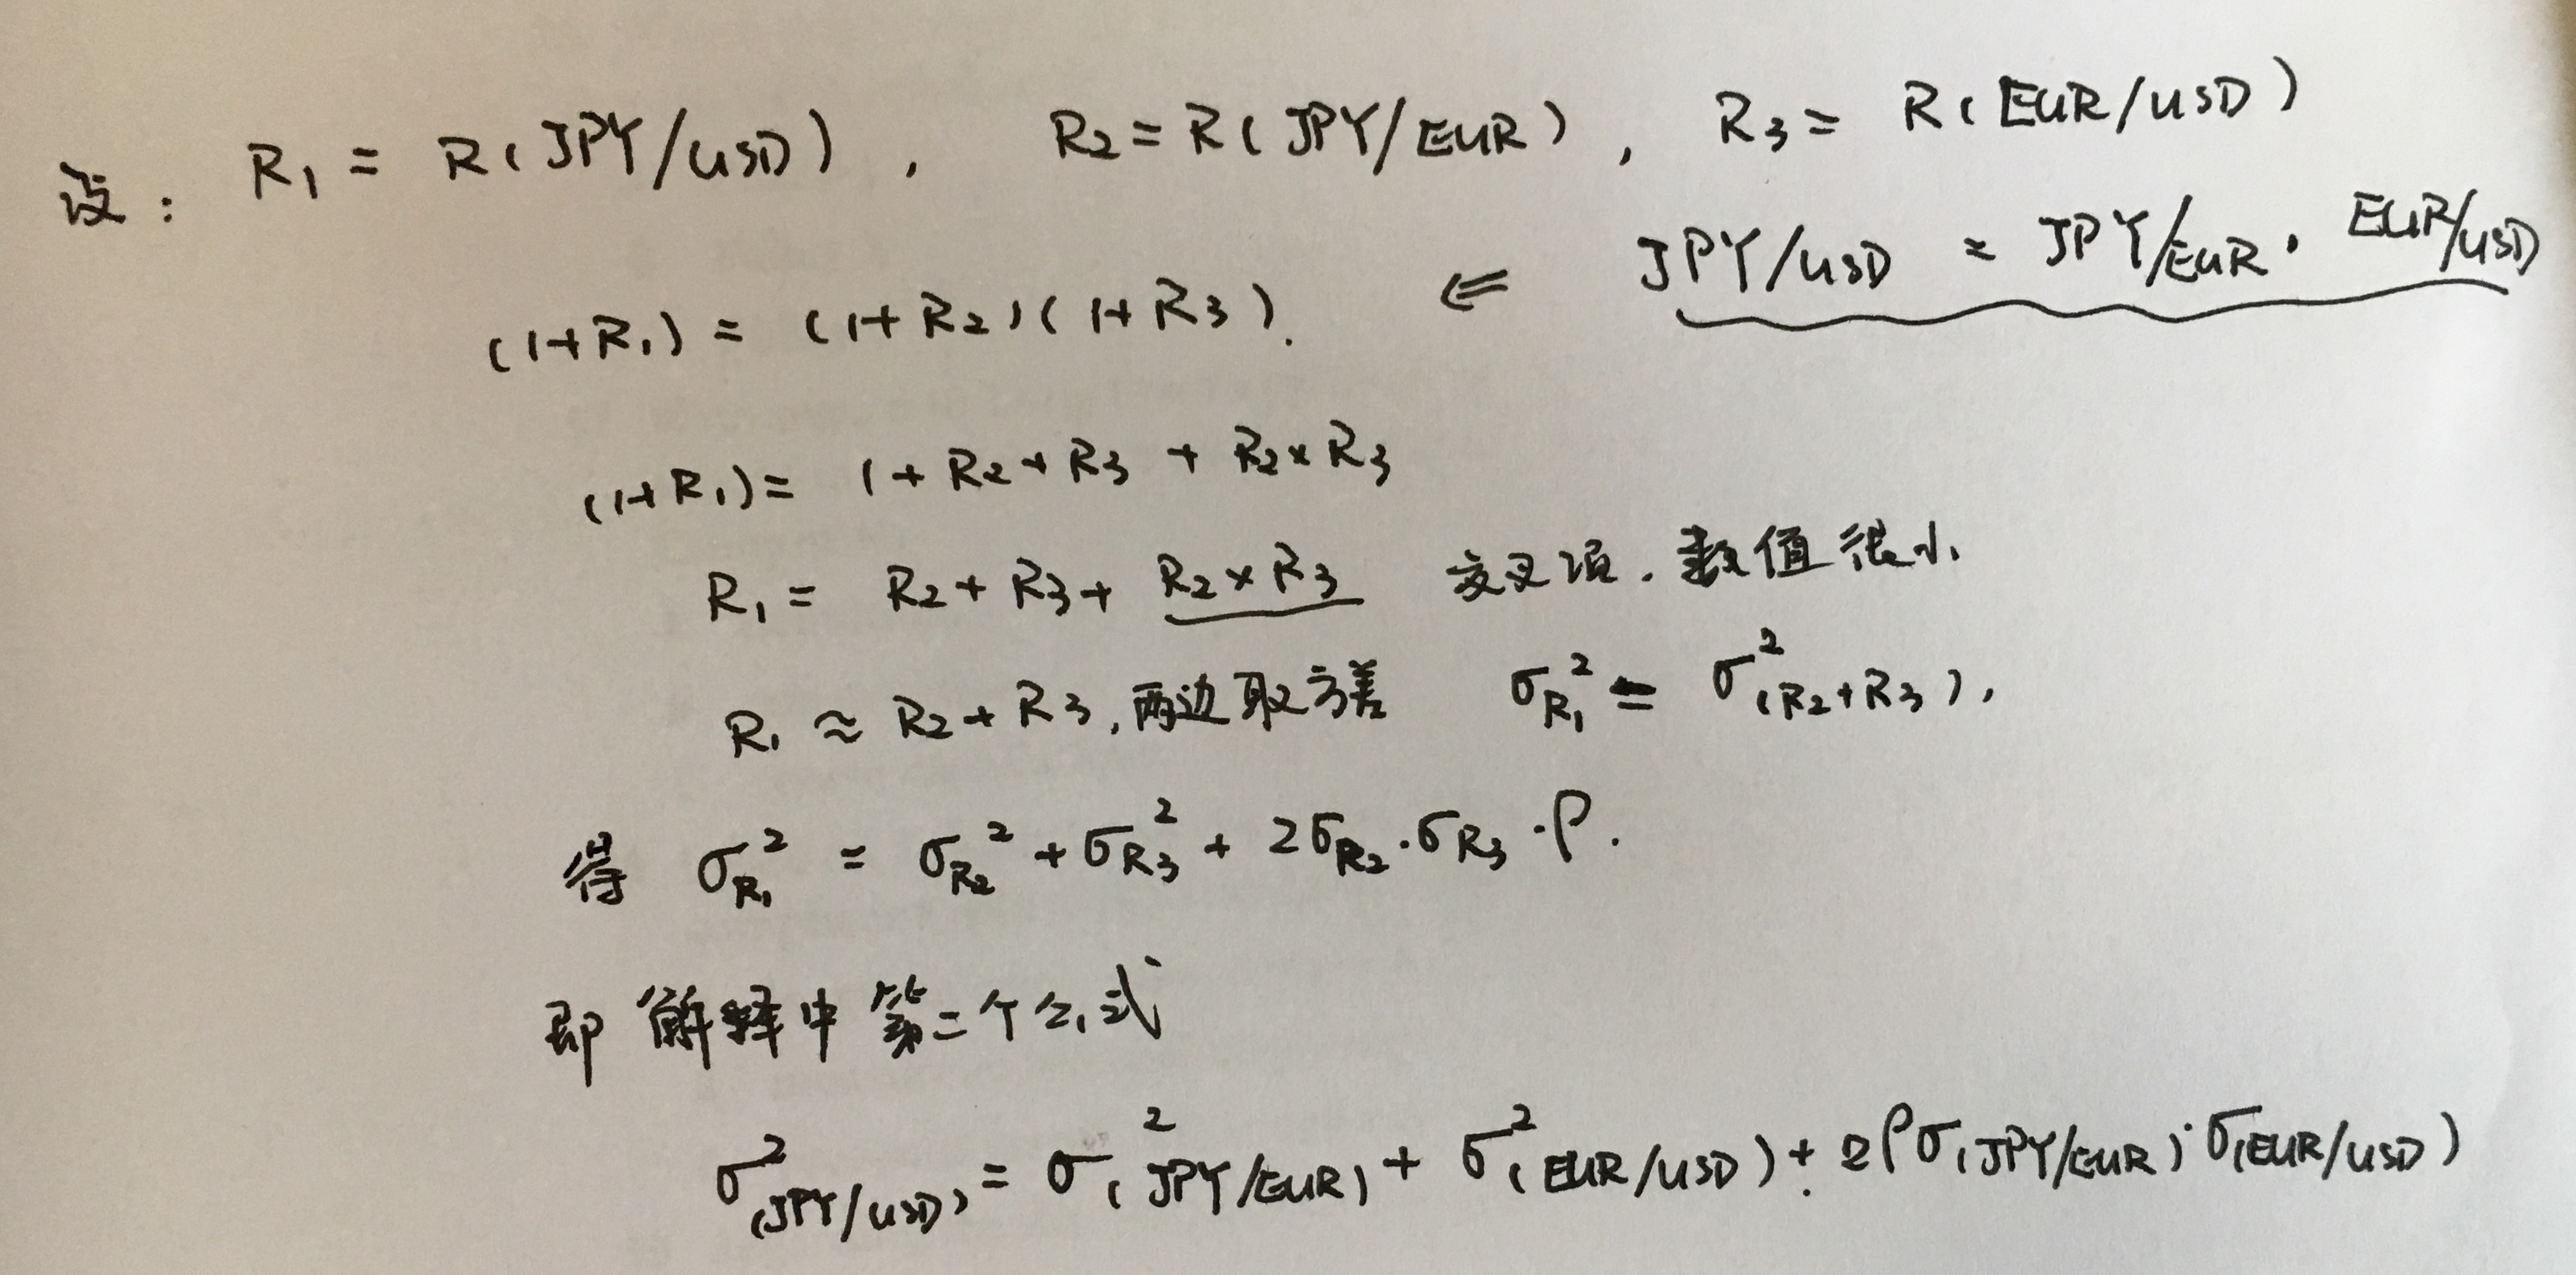 设: R₁ = R(JPY/USD), R₂ = R(JPY/EUR), R₃ = R(EUR/USD)
(1+R₁) = (1+R₂)(1+R₃). ⇐ JPY/USD = JPY/EUR · EUR/USD
(1+R₁) = 1 + R₂ + R₃ + R₂×R₃
R₁ = R₂ + R₃ + R₂×R₃ 交叉项. 数值很小
R₁ ≈ R₂ + R₃, 两边取方差 σ²_R₁ = σ²(R₂+R₃),
得 σ_R₁² = σ_R₂² + σ_R₃² + 2σ_R₂·σ_R₃·ρ.
即 解释中第二个公式
σ²(JPY/USD) = σ²(JPY/EUR) + σ²(EUR/USD) + 2ρσ(JPY/EUR)·σ(EUR/USD)